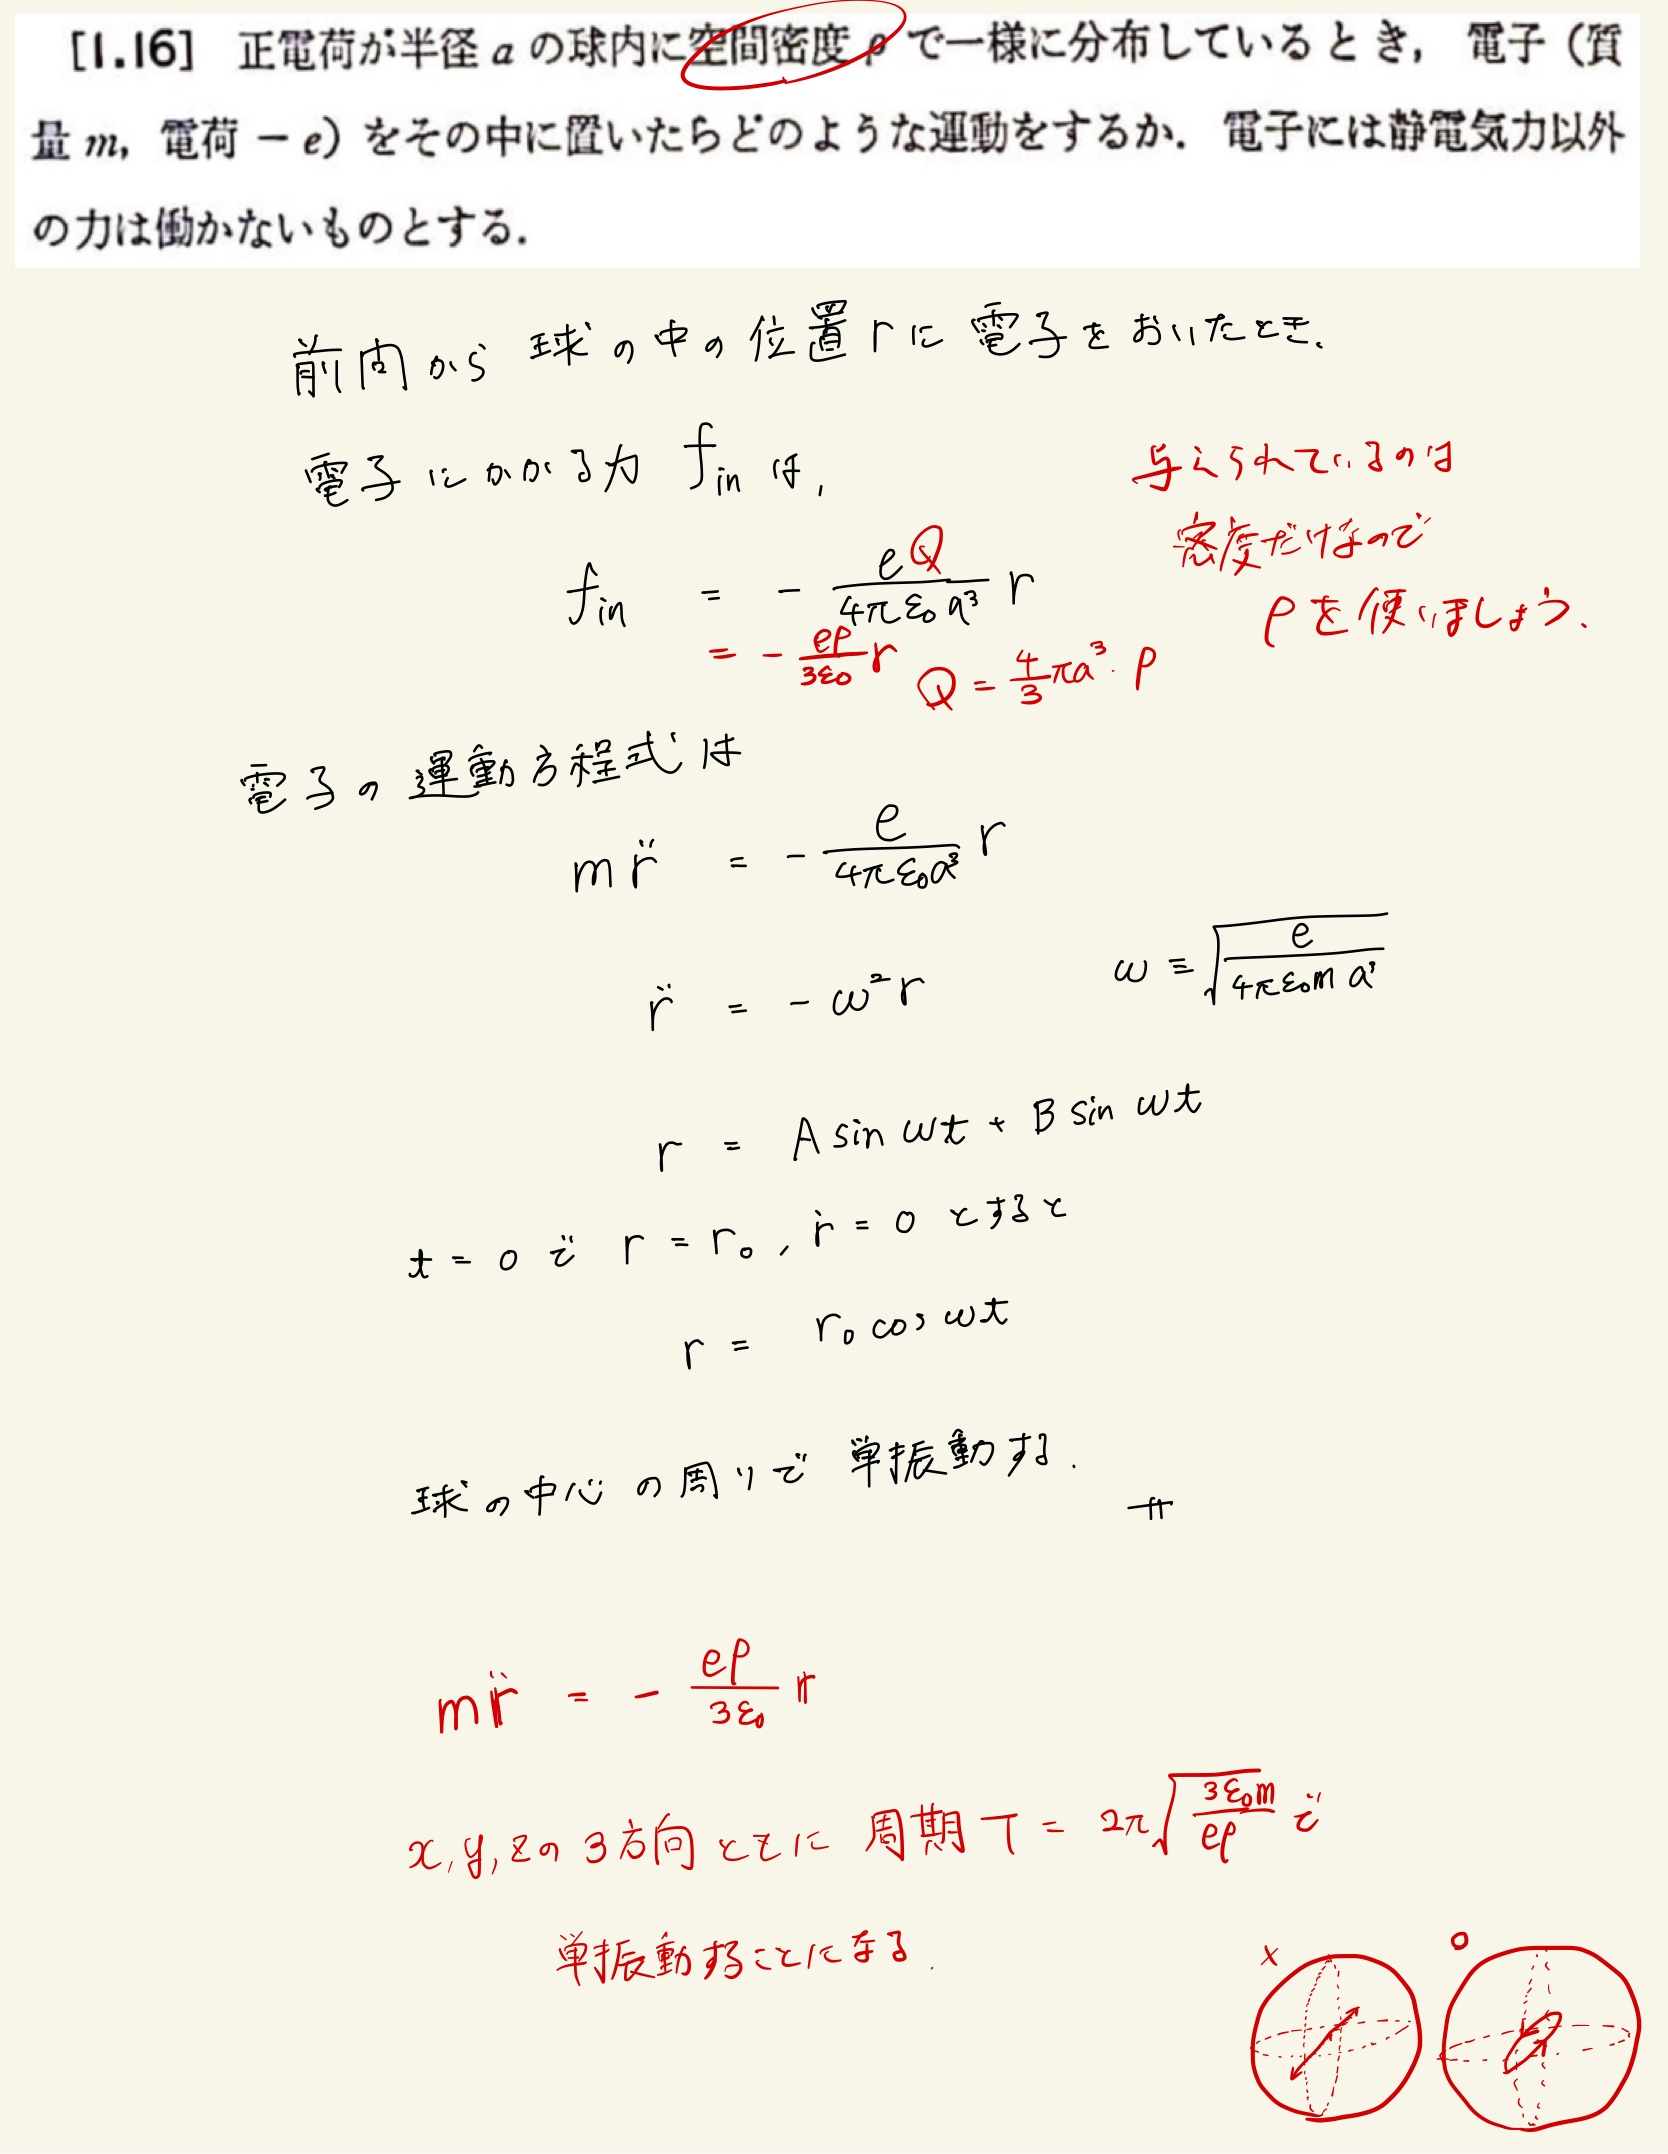 [1.16] 正電荷が半径 a の球内に空間密度 ρ で一様に分布しているとき，電子（質
量 m，電荷 − e）をその中に置いたらどのような運動をするか．電子には静電気力以外
の力は働かないものとする．
前問から 球の中の位置 r に 電子を おいたとき、
電子にかかる力 f_in は,
与えられているのは
密度だけなので
ρを使いましょう.
f_in = - eQ/(4πε₀a³) r
= - eρ/(3ε₀) r Q = 4/3 πa³・ρ
電子の運動方程式は
m r̈ = - e/(4πε₀a³) r
r̈ = - ω² r ω ≡ √(e/(4πε₀m a³))
r = A sin ωt + B sin ωt
t = 0 で r = r₀, ṙ = 0 とすると
r = r₀ cos ωt
球の中心の周りで 単振動する.
m r̈ = - eρ/(3ε₀) r
x, y, zの3方向ともに 周期 T = 2π√(3ε₀m/(eρ)) で
単振動することになる.
× ○